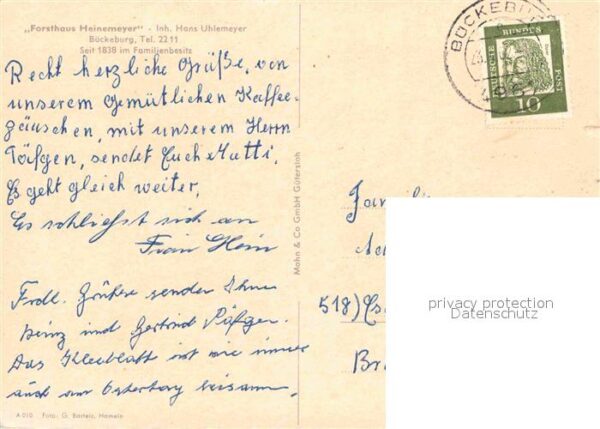 „Forsthaus Heinemeyer" - Inh. Hans Uhlemeyer
Bückeburg, Tel. 22 11
Seit 1838 im Familienbesitz
Recht herzliche Grüße, von
unserem Gemütlichen Kaffee-
päuschen, mit unserem Herrn
Päfgen, sendet Euch Mutti.
Es geht gleich weiter.
Es schließt sich an
Frau Hein
Frdl. Grüße sendet Ihnen
Heinz und Gertrud Päfgen.
Das Kleeblatt ist wie immer
auch am Ostertag beisamm.
A 010 Foto: G. Bartels, Hameln
Mohn & Co GmbH Gütersloh
BÜCKEBU
DEUTSCHE BUNDESPOST
10
Famili
518) Es
privacy protection
Datenschutz